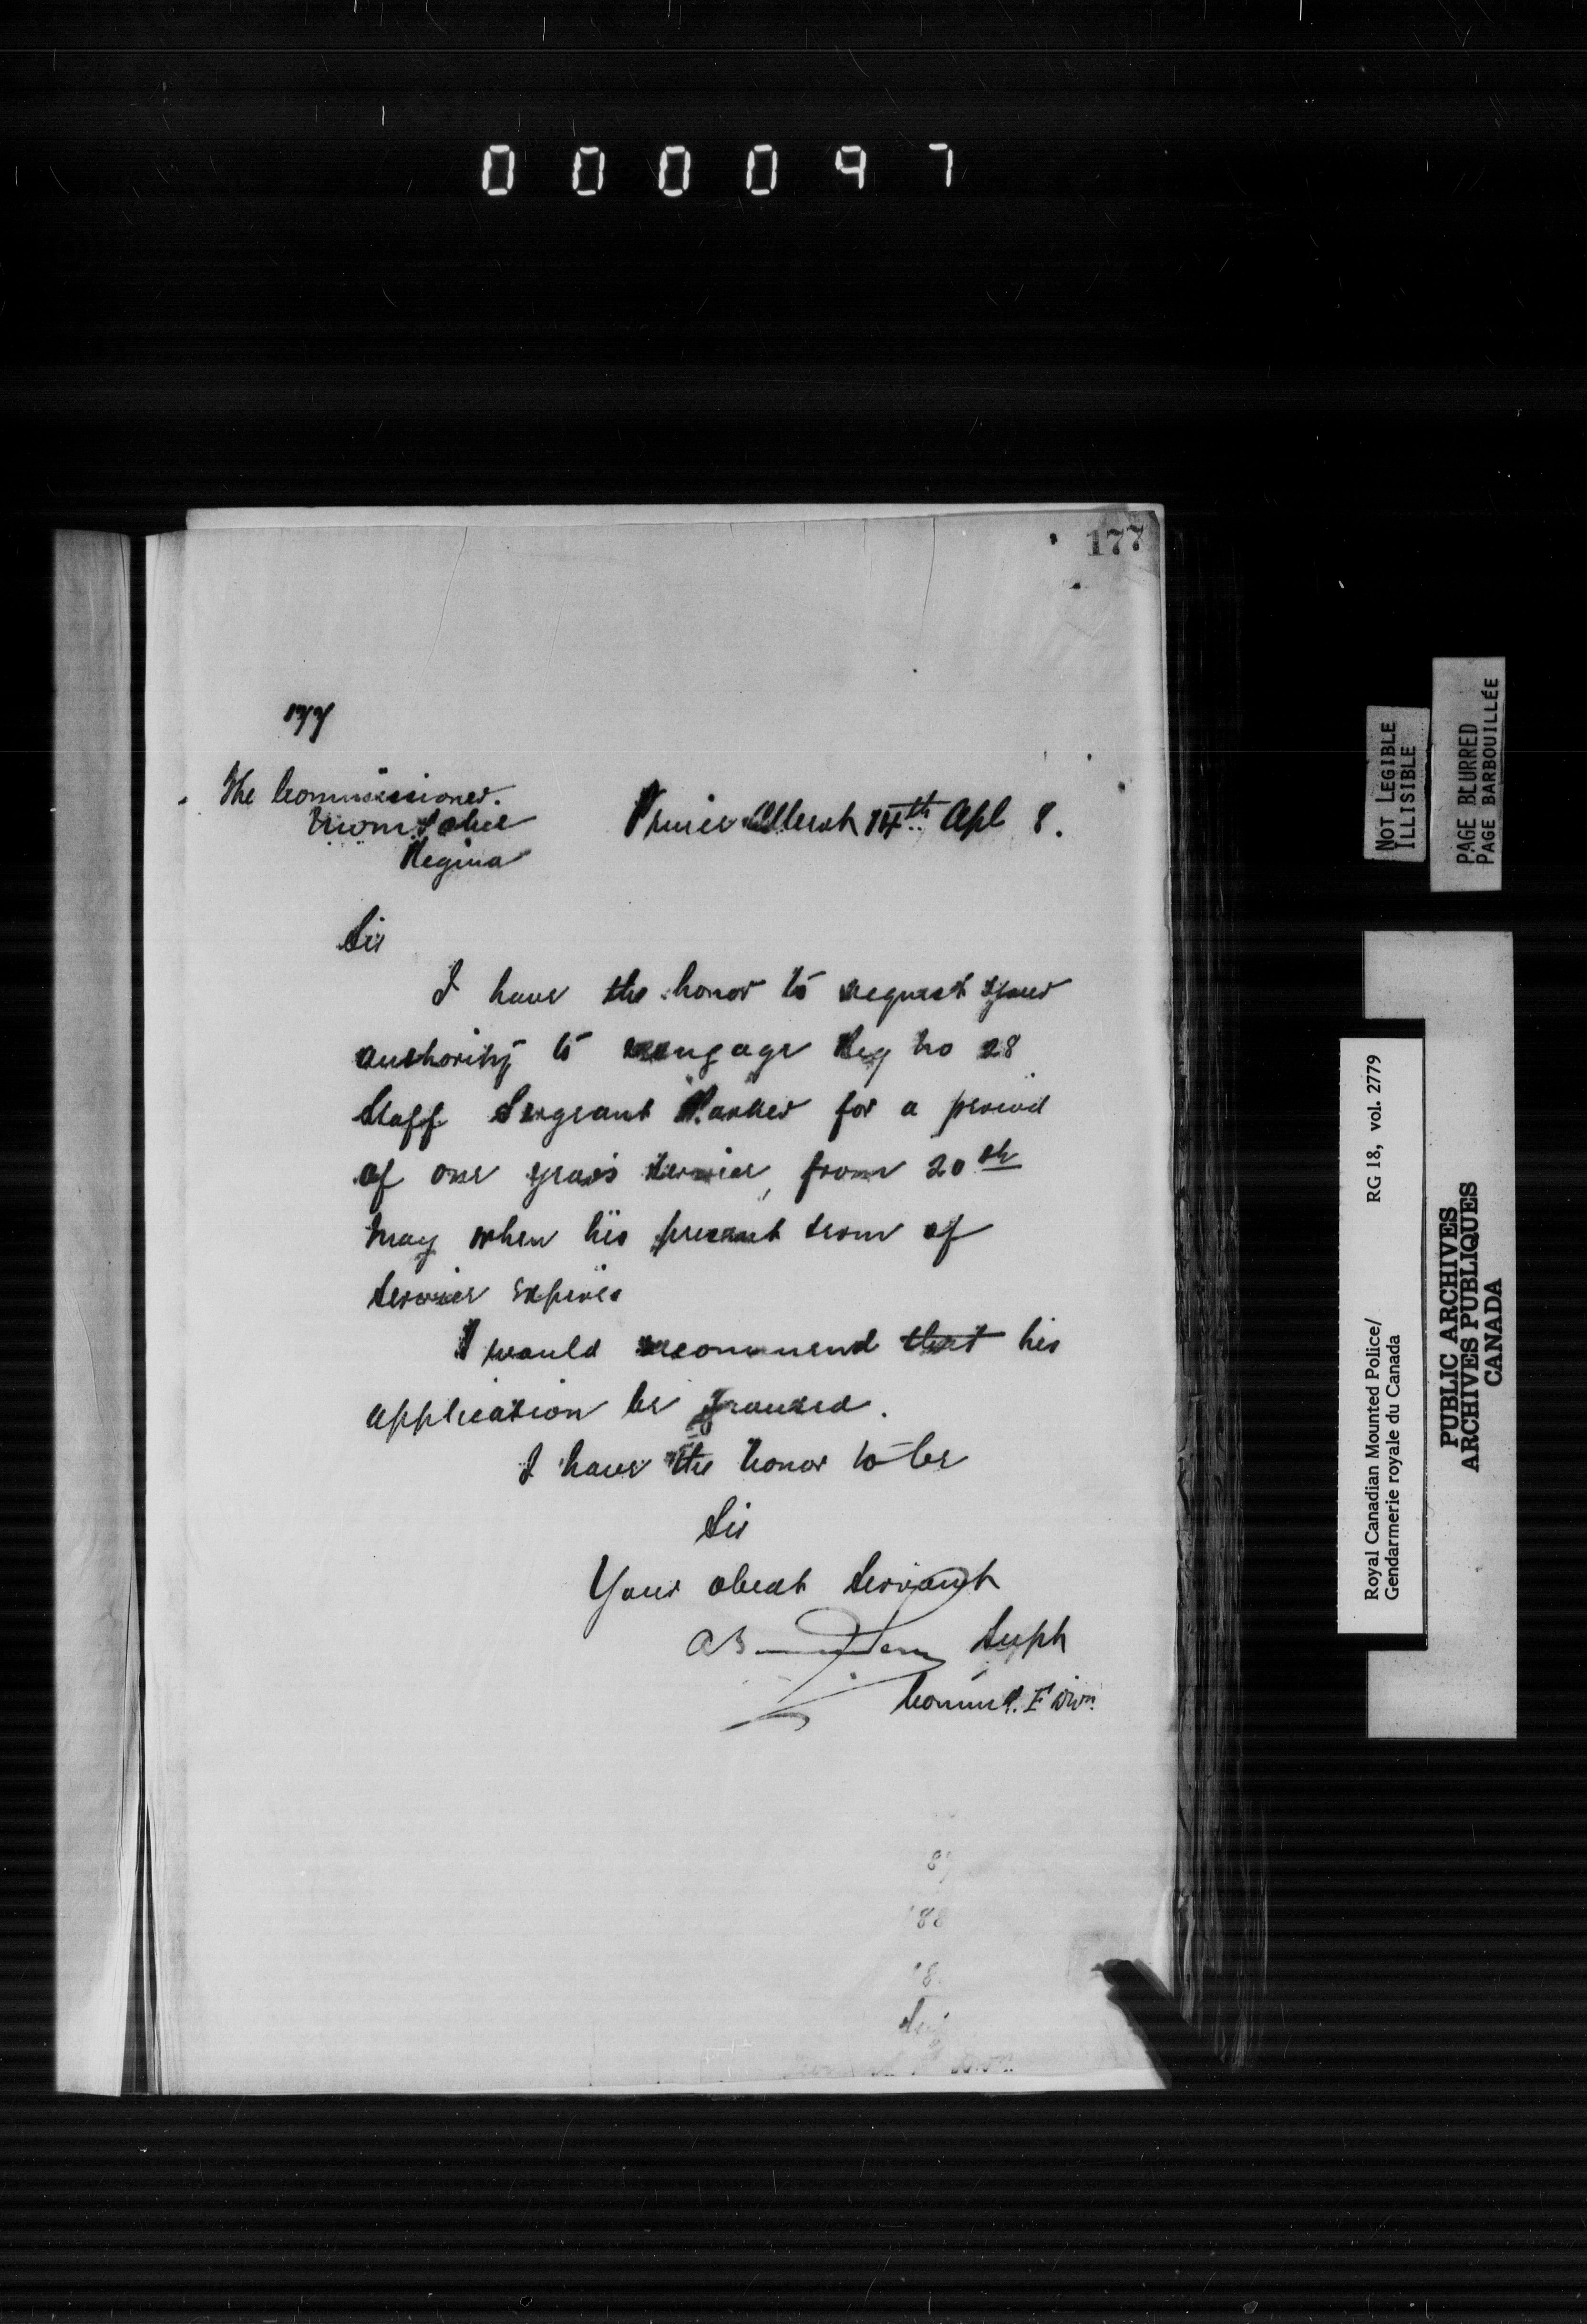 000097
177
177
The Commissioner.
N.W.M. Police
Regina
Prince Albert 14th Apl 8.
Sir
I have the honor to request your
authority to reengage Reg no 28
Staff Sergeant Parker for a period
of one years service, from 20th
May when his present term of
service expires
I would recommend that his
application be granted.
I have the honor to be
Sir
Your obedt Servant
Supt
Command. F Divn.
87
188
18
NOT LEGIBLE
ILLISIBLE
PAGE BLURRED
PAGE BARBOUILLÉE
Royal Canadian Mounted Police/ RG 18, vol. 2779
Gendarmerie royale du Canada
PUBLIC ARCHIVES
ARCHIVES PUBLIQUES
CANADA